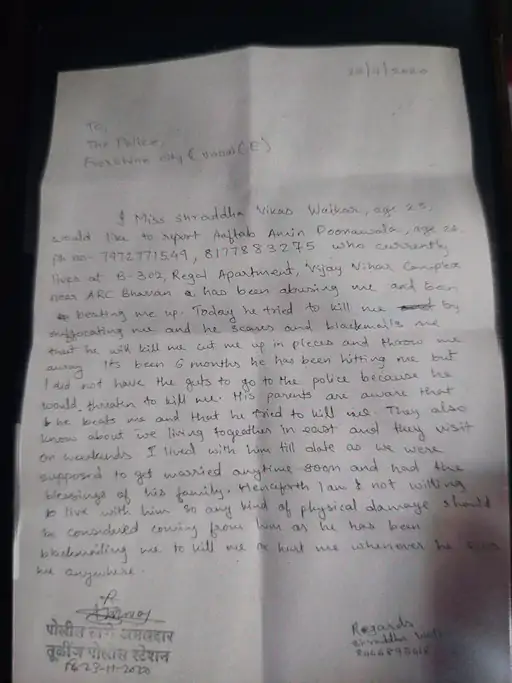 To,
The Police,
I Miss Shraddha Vikas Walkar, age 25,
would like to report Aaftab Amin Poonawala, age 26
ph no - 7972771549, 8177883275 who currently
lives at B-302, Regal Apartment, Vijay Vihar Complex
near ARC Bhavan & has been abusing me and been
beating me up. Today he tried to kill me by
suffocating me and he scares and blackmails me
that he will kill me cut me up in pieces and throw me
away. Its been 6 months he has been hitting me but
I did not have the guts to go to the police because he
would threaten to kill me. His parents are aware that
he beats me and that he tried to kill me. They also
know about we living together in and they visit
on weekends I lived with him till date as we were
supposed to get married anytime soon and had the
blessings of his family. Henceforth I am not willing
to live with him so any kind of physical damage should
be considered coming from him as he has been
blackmailing me to kill me or hurt me whenever he sees
me anywhere.
पोलीस ठाणे अंमलदार
तुळींज पोलीस स्टेशन
23-11-2020
Regards